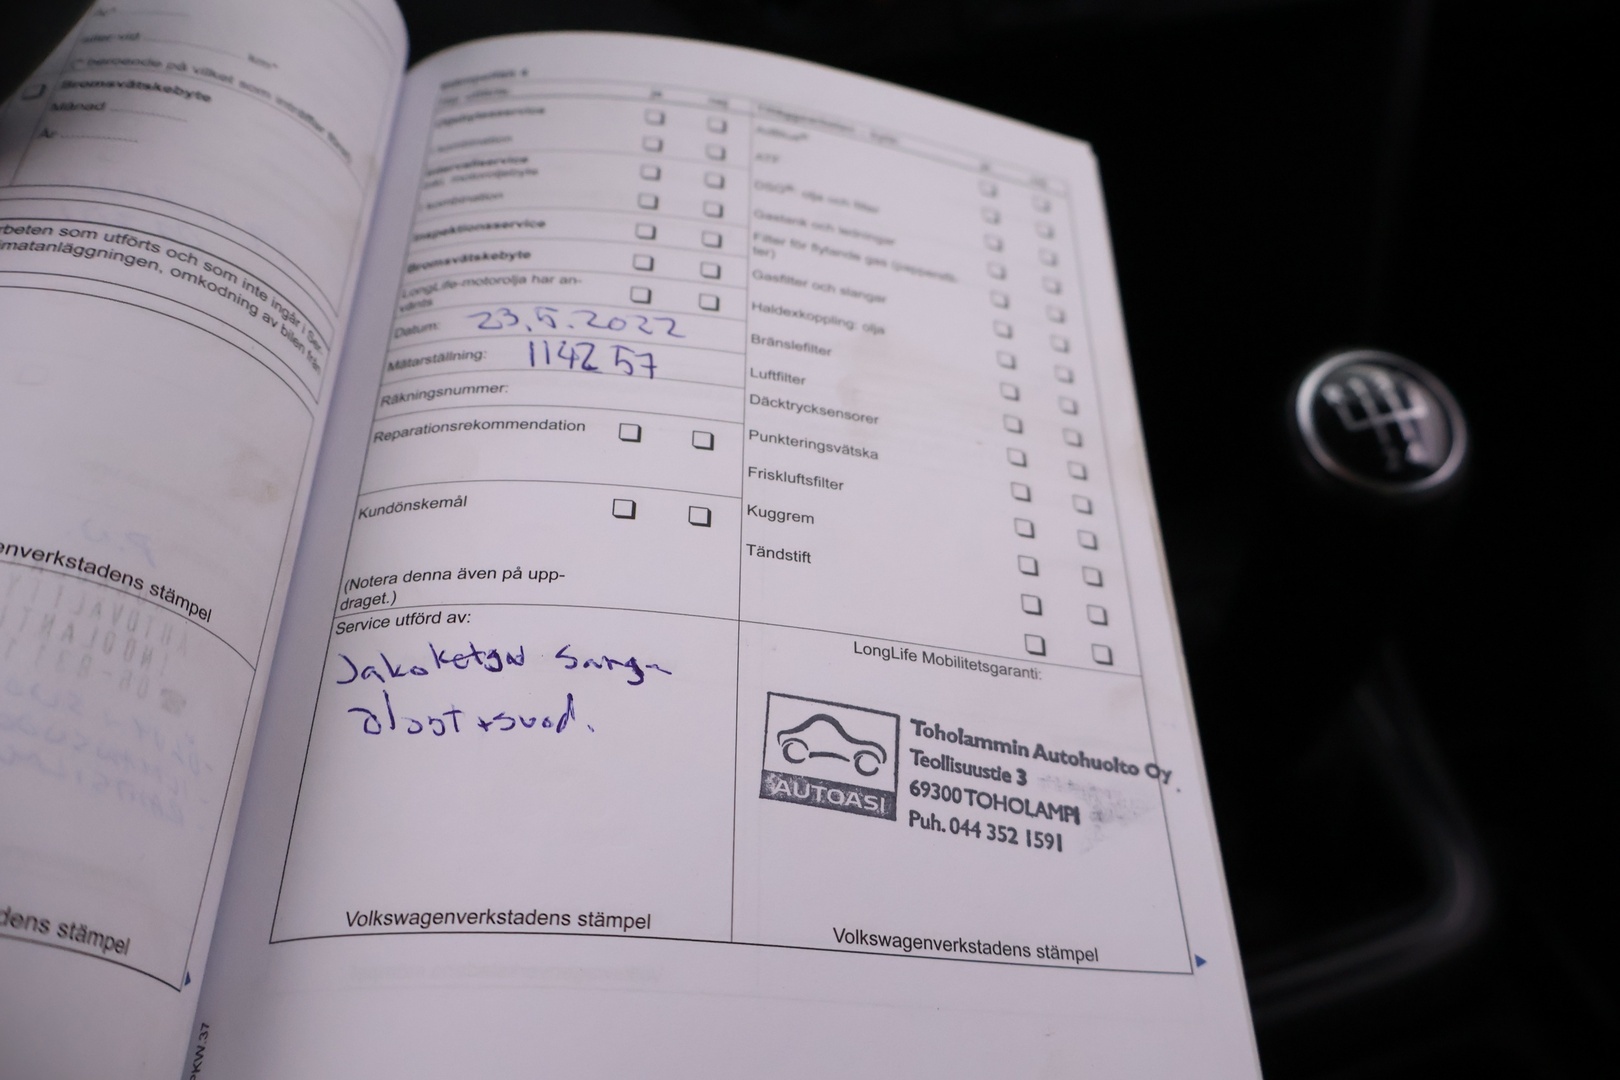 eller vid
km*
(* beroende på vilket som inträffar först)
Bromsvätskebyte
Månad
År
rbeten som utförts och som inte ingår i Ser-
imatanläggningen, omkodning av bilen från
enverkstadens stämpel
dens stämpel
ja
nej
Oljebytesservice
kombination
Intervallservice
inkl. motoroljebyte
kombination
Inspektionsservice
Bromsvätskebyte
LongLife-motorolja har an-
vänts
Datum: 23.5.2022
Mätarställning: 114257
Räkningsnummer:
Reparationsrekommendation
Kundönskemål
(Notera denna även på upp-
draget.)
Service utförd av:
AdBlue®
ATF
DSG®: olja och filter
Gastank och ledningar
Filter för flytande gas (pappersfil-
ter)
Gasfilter och slangar
Haldexkoppling: olja
Bränslefilter
Luftfilter
Däcktrycksensorer
Punkteringsvätska
Friskluftsfilter
Kuggrem
Tändstift
LongLife Mobilitetsgaranti:
AUTOASI
Toholammin Autohuolto Oy
Teollisuustie 3
69300 TOHOLAMPI
Puh. 044 352 1591
Volkswagenverkstadens stämpel
Volkswagenverkstadens stämpel
PKW.37